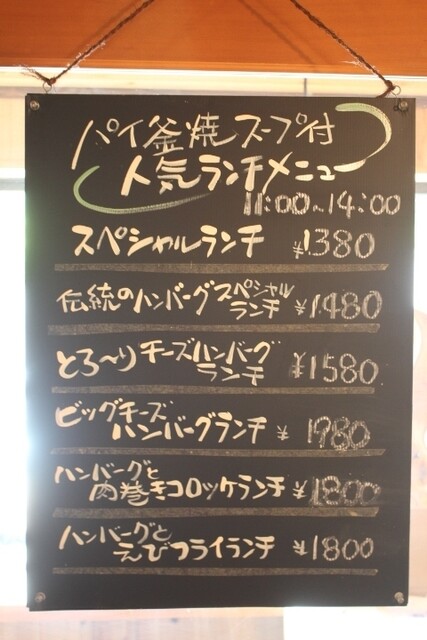 パイ釜焼スープ付
人気ランチメニュー
11:00~14:00
スペシャルランチ ¥1380
伝統のハンバーグスペシャル
ランチ ¥1480
とろ~りチーズハンバーグ
ランチ ¥1580
ビッグチーズ
ハンバーグランチ ¥1980
ハンバーグと
肉巻きコロッケランチ ¥1800
ハンバーグと
えびフライランチ ¥1800